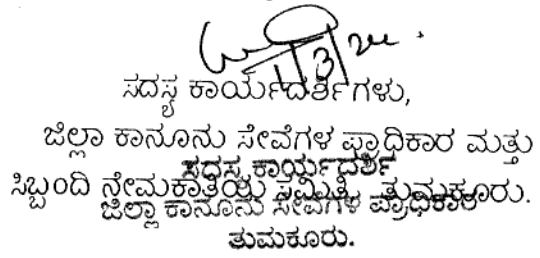 1/3/24
ಸದಸ್ಯ ಕಾರ್ಯದರ್ಶಿಗಳು,
ಜಿಲ್ಲಾ ಕಾನೂನು ಸೇವೆಗಳ ಪ್ರಾಧಿಕಾರ ಮತ್ತು
ಸದಸ್ಯ ಕಾರ್ಯದರ್ಶಿ
ಸಿಬ್ಬಂದಿ ನೇಮಕಾತಿಯ ಸಮಿತಿ, ತುಮಕೂರು.
ಜಿಲ್ಲಾ ಕಾನೂನು ಸೇವೆಗಳ ಪ್ರಾಧಿಕಾರ
ತುಮಕೂರು.